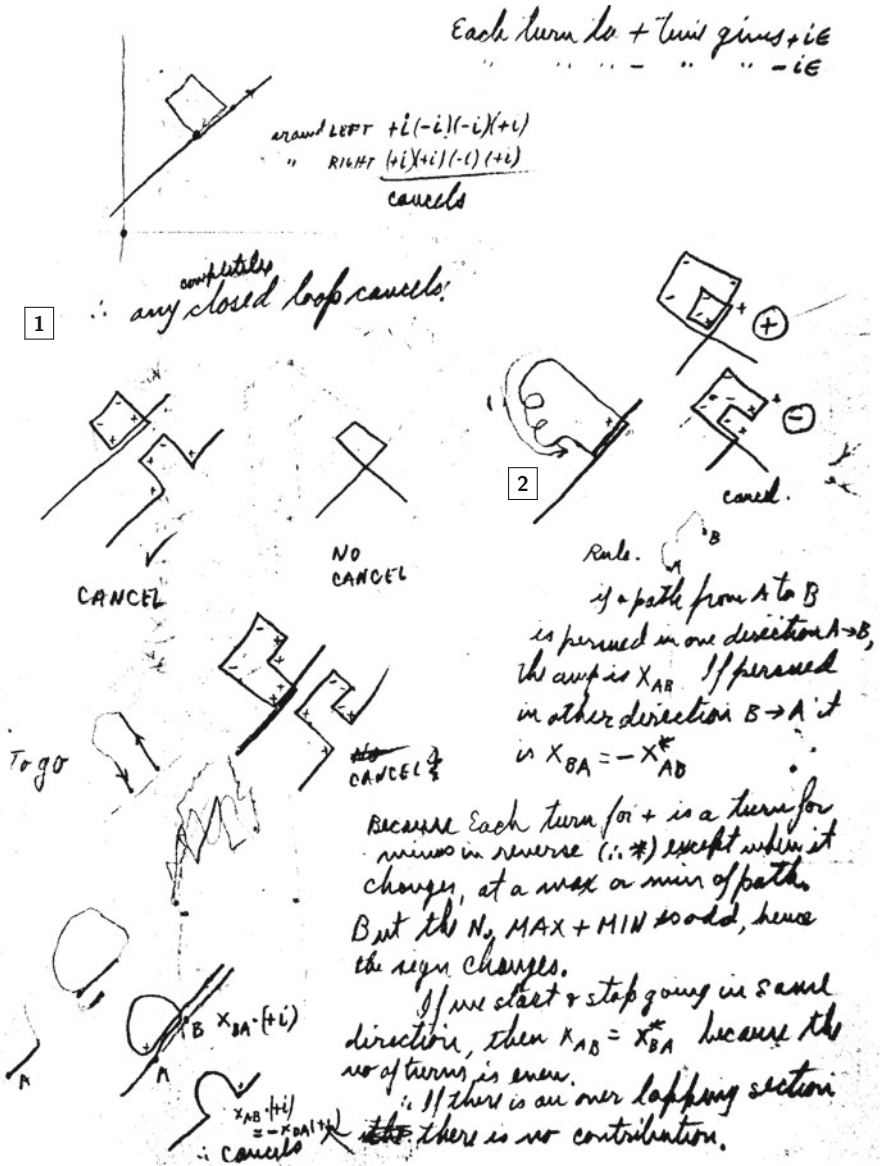 Each turn to + time gives +iϵ
" " " - " " -iϵ
around LEFT +i(-i)(-i)(+i)
" RIGHT (+i)(+i)(-i)(+i)
cancels
completely
∴ any closed loop cancels!
1
2
+ ⊕
+ ⊖
cancel.
CANCEL
NO
CANCEL
Rule. A B
if a path from A to B
is persued in one direction A→B,
the amp is X_AB If persued
in other direction B→A it
is X_BA = -X*_AB
To go
CANCELS
Because Each turn for + is a turn for
minus in reverse (∴ *) except when it
changes, at a max or min of path.
But the No, MAX + MIN is odd, hence
the sign changes.
If we start & stop going in same
direction, then X_AB = X*_BA because the
no of turns is even.
∴ If there is an over lapping section
there is no contribution.
A
B X_BA·(+i)
A
X_AB·(+i)
= -X_BA(+i)
∴ Cancels